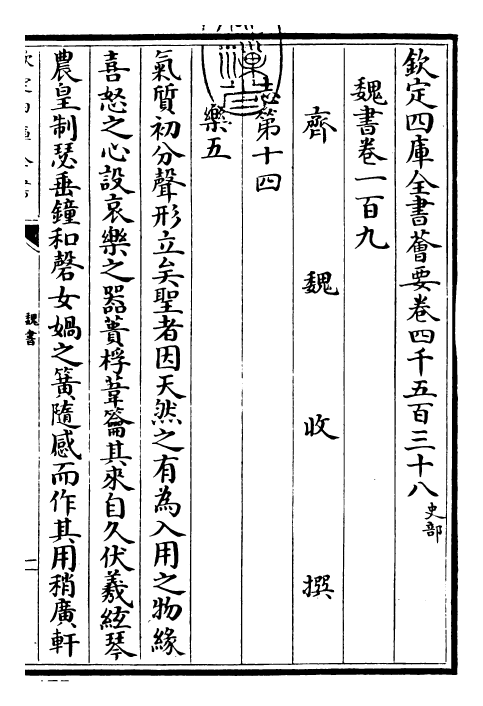 欽定四庫全書薈要卷四千五百三十八史部
魏書卷一百九
齊魏收撰
志第十四
樂五
氣質初分聲形立矣聖者因天然之有為入用之物緣
喜怒之心設哀樂之器蕢桴葦籥其來自久伏羲絃琴
農皇制瑟垂鐘和磬女媧之簧隨感而作其用稍廣軒
魏書